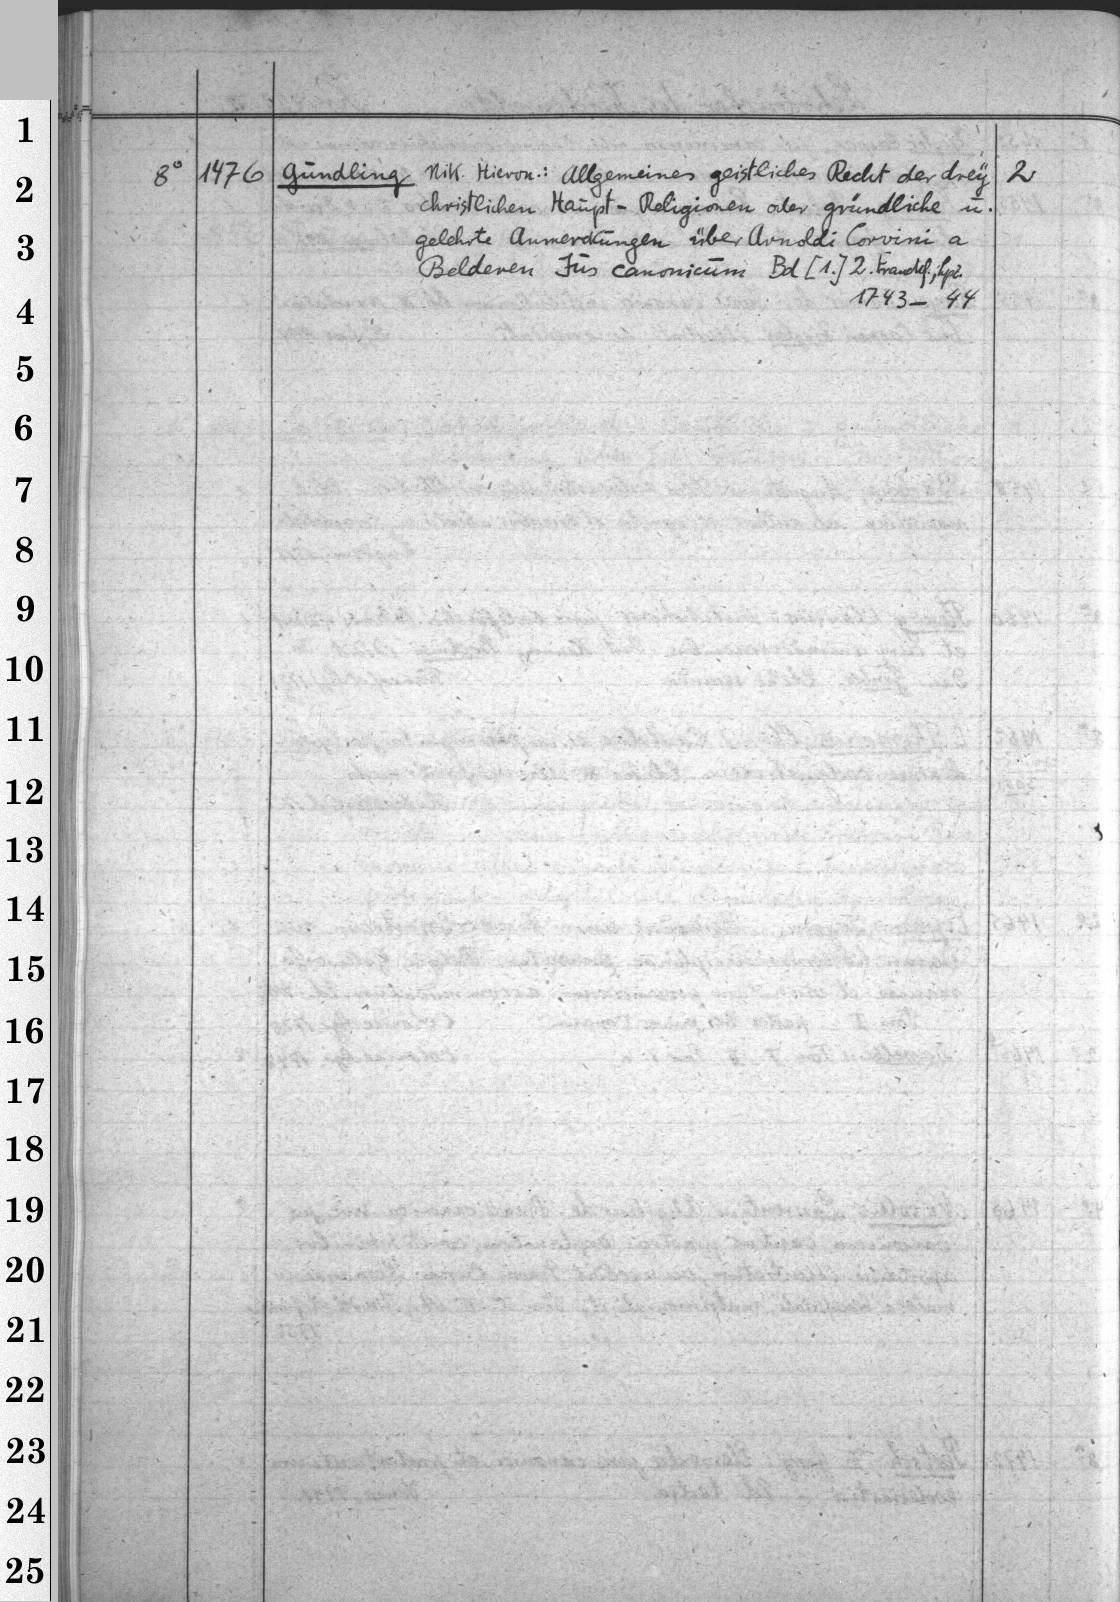 1
8° 1476 Gundling Nik. Hieron.: Allgemeines geistliches Recht der dreÿ 2
2
christlichen Haupt- Religionen oder gründliche u.
3
gelehrte Anmerckungen über Arnoldi Corvini a
Belderen Jus canonicum Bd [1.] 2. Franckf., Lpz.
4
1743- 44
5
6
7
8
9
10
11
12
13
14
15
16
17
18
19
20
21
22
23
24
25